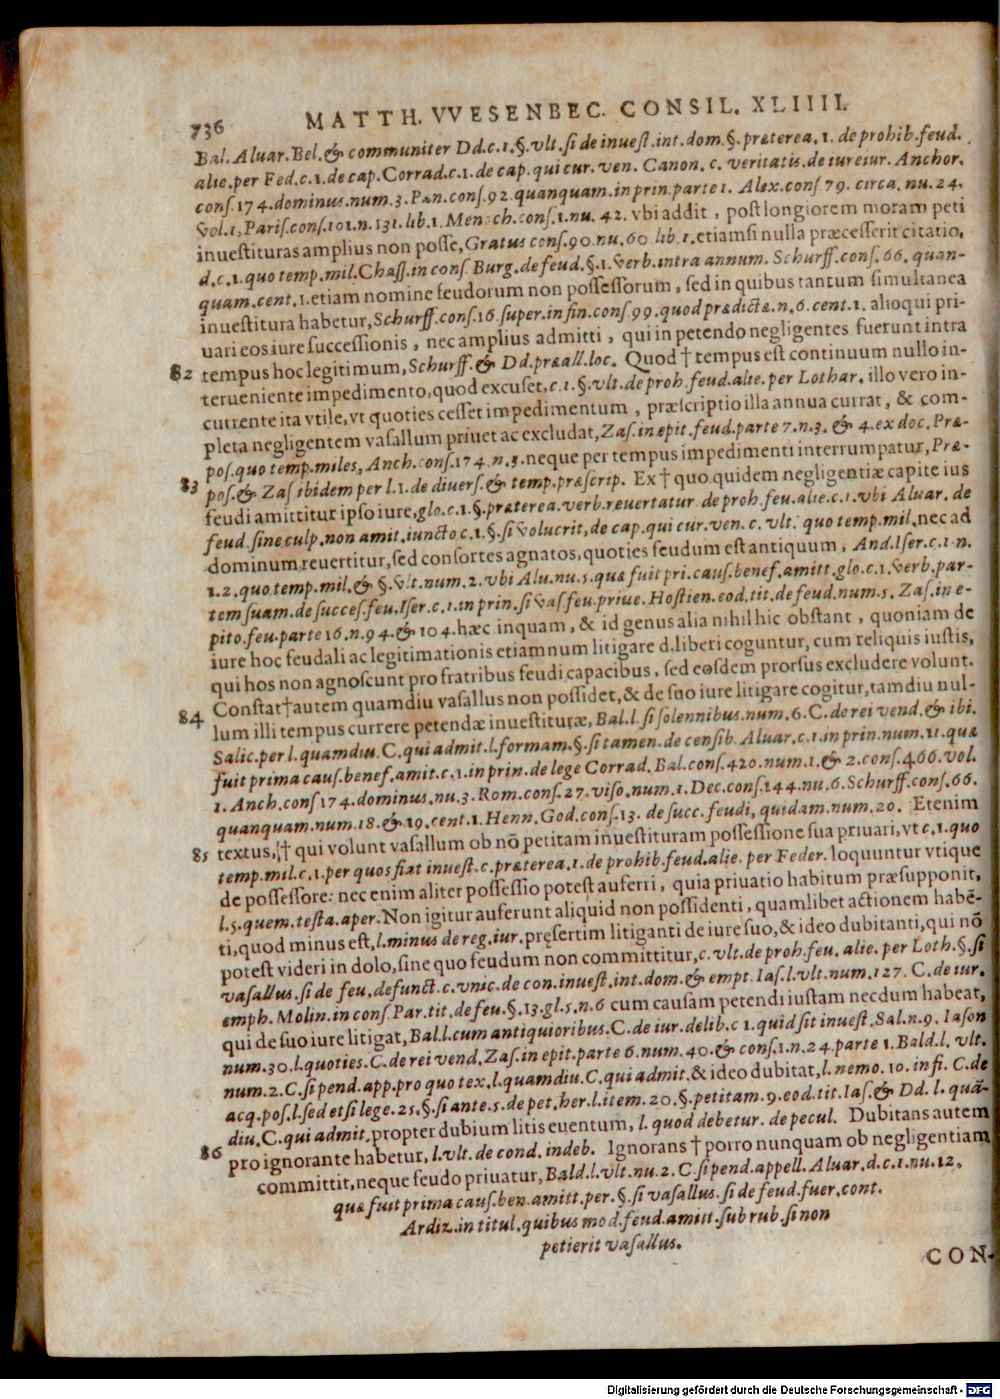 736 MATTH. VVESENBEC. CONSIL. XLIIII.
Bal. Aluar. Bel. & communiter Dd. c. 1. §. vlt. si de inuest. int. dom. §. præterea. 1. de prohib. feud.
alie. per Fed. c. 1. de cap. Corrad. c. 1. de cap. qui cur. ven. Canon. c. veritatis. de iureiur. Anchor.
cons. 174. dominus. num. 3. Pan. cons. 92. quanquam. in prin. parte 1. Alex. cons 79. circa. nu. 24.
vol. 1. Paris. cons. 101. n. 131. lib. 1. Menoch. cons. 1. nu. 42. vbi addit, post longiorem moram peti
inuestituras amplius non posse, Gratus cons. 90. nu. 60 lib. 1. etiamsi nulla præcesserit citatio,
d. c. 1. quo temp. mil. Chass. in cons Burg. de feud. §. 1. verb. intra annum. Schurff. cons. 66. quan-
quam. cent. 1. etiam nomine feudorum non possessorum, sed in quibus tantum simultanea
inuestitura habetur, Schurff. cons. 16. super. in fin. cons. 99. quod prædictæ. n. 6. cent. 1. alioqui pri-
uari eos iure successionis, nec amplius admitti, qui in petendo negligentes fuerunt intra
82 tempus hoc legitimum, Schurff. & Dd. præall. loc. Quod † tempus est continuum nullo in-
terueniente impedimento, quod excuset, c. 1. §. vlt. de proh. feud. alie. per Lothar. illo vero in-
currente ita vtile, vt quoties cesset impedimentum, præscriptio illa annua currat, & com-
pleta negligentem vasallum priuet ac excludat, Zas. in epit. feud. parte 7. n. 3. & 4. ex doc. Præ-
pos. quo temp. miles, Anch. cons. 174. n. 3. neque per tempus impedimenti interrumpatur, Præ-
83 pos. & Zas ibidem per l. 1. de diuers. & temp. præscrip. Ex † quo quidem negligentiæ capite ius
feudi amittitur ipso iure, glo. c. 1. §. præterea. verb. reuertatur de proh. feu. alie. c. 1. vbi Aluar. de
feud. sine culp. non amit. iuncto c. 1. §. si voluerit, de cap. qui cur. ven. c. vlt. quo temp. mil. nec ad
dominum reuertitur, sed consortes agnatos, quoties feudum est antiquum, And. Iser. c. 1. n.
1. 2. quo temp. mil. & §. vlt. num. 2. vbi Alu. nu. 5. quæ fuit pri. caus. benef. amitt. glo. c. 1. verb. par-
tem suam. de succes. feu. Iser. c. 1. in prin. si vas feu. priue. Hostien. eod. tit. de feud. num. 5. Zas. in e-
pito. feu. parte 16. n. 94. & 104. hæc inquam, & id genus alia nihil hic obstant, quoniam de
iure hoc feudali ac legitimationis etiamnum litigare d. liberi coguntur, cum reliquis iustis,
qui hos non agnoscunt pro fratribus feudi capacibus, sed eosdem prorsus excludere volunt.
84 Constat † autem quamdiu vasallus non possidet, & de suo iure litigare cogitur, tamdiu nul-
lum illi tempus currere petendæ inuestituræ, Bal. l. si solennibus. num. 6. C. de rei vend. & ibi.
Salic. per l. quamdiu. C. qui admit. l. formam. §. si tamen. de censib. Aluar. c. 1. in prin. num. 11. quæ
fuit prima caus. benef. amit. c. 1. in prin. de lege Corrad. Bal. cons. 420. num. 1. & 2. cons. 466. vol.
1. Anch. cons 174. dominus. nu. 3. Rom. cons. 27. viso. num. 1. Dec. cons. 144. nu. 6. Schurff. cons. 66.
quanquam. num. 18. & 19. cent. 1. Henn. God. cons. 13. de succ. feudi, quidam. num. 20. Etenim
85 textus, † qui volunt vasallum ob nō petitam inuestituram possessione sua priuari, vt c. 1. quo
temp. mil. c. 1. per quos fiat inuest. c. præterea. 1. de prohib. feud. alie. per Feder. loquuntur vtique
de possessore: nec enim aliter possessio potest auferri, quia priuatio habitum præsupponit,
l. 5. quem. testa. aper. Non igitur auferunt aliquid non possidenti, quamlibet actionem habē-
ti, quod minus est, l. minus de reg. iur. pręsertim litiganti de iure suo, & ideo dubitanti, qui nō
potest videri in dolo, sine quo feudum non committitur, c. vlt. de proh. feu. alie. per Loth. §. si
vasallus. si de feu. defunct. c. vnic. de con. inuest. int. dom. & empt. Ias. l. vlt. num. 127. C. de iur.
emph. Molin. in cons Par. tit. de feu. §. 13. gl. 5. n. 6 cum causam petendi iustam necdum habeat,
qui de suo iure litigat, Bal. l. cum antiquioribus. C. de iur. delib. c 1. quid sit inuest. Sal. n. 9. Iason
num. 30. l. quoties. C. de rei vend. Zas. in epit. parte 6. num. 40. & cons. 1. n. 24. parte 1. Bald. l. vlt.
num. 2. C. si pend. app. pro quo tex. l. quamdiu. C. qui admit. & ideo dubitat, l. nemo. 10. infi. C. de
acq. pos. l. sed etsi lege. 25. §. si ante. 5. de pet. her. l. item. 20. §. petitam. 9. eod. tit. Ias. & Dd. l. quā-
diu. C. qui admit. propter dubium litis euentum, l. quod debetur. de pecul. Dubitans autem
86 pro ignorante habetur, l. vlt. de cond. indeb. Ignorans † porro nunquam ob negligentiam
committit, neque feudo priuatur, Bald. l. vlt. nu. 2. C. si pend. appell. Aluar. d. c. 1. nu. 12.
quæ fuit prima caus. ben. amitt. per. §. si vasallus. si de feud. fuer. cont.
Ardiz. in titul. quibus mod. feud. amitt. sub rub. si non
petierit vasallus.
CON-
Digitalisierung gefördert durch die Deutsche Forschungsgemeinschaft - DFG